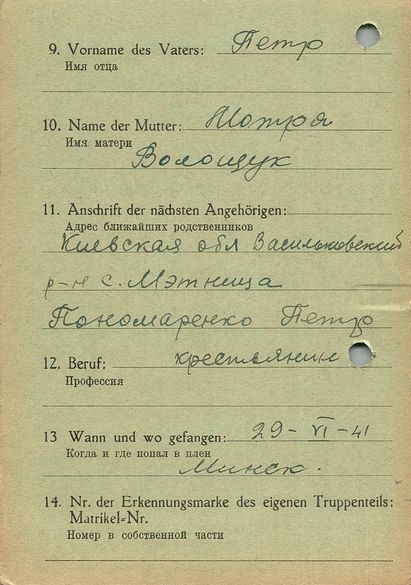 9. Vorname des Vaters: Петр
Имя отца
10. Name der Mutter: Мотря
Имя матери
Волощук
11. Anschrift der nächsten Angehörigen:
Адрес ближайших родственников
Киевская обл Васильковский
р-н с. Мэтница
Пономаренко Петр
12. Beruf: крестьянин
Профессия
13 Wann und wo gefangen: 29-VI-41
Когда и где попал в плен
Минск.
14. Nr. der Erkennungsmarke des eigenen Truppenteils:
Matrikel-Nr.
Номер в собственной части